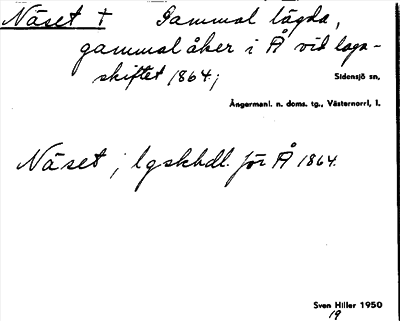 Näset † Gammal lägda,
gammal åker i Å vid laga-
skiftet 1864;
Sidensjö sn,
Ångermanl. n. doms. tg., Västernorrl, l.
Näset, i lgskhdl. för Å 1864.
Sven Hiller 1950
19